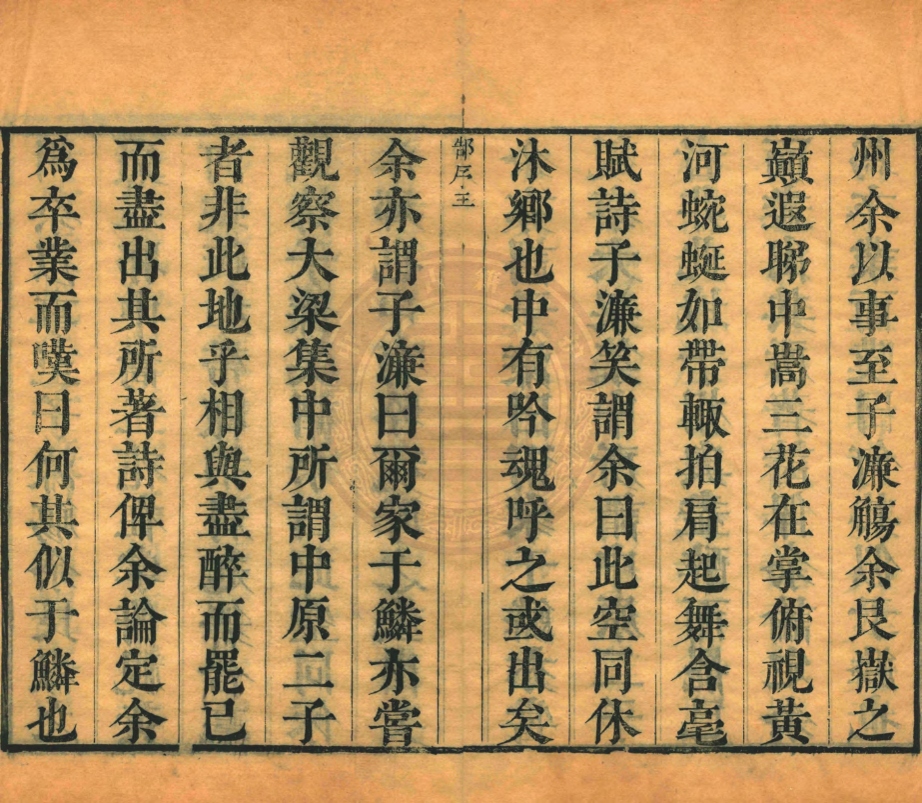 州余以事至子濂觴余艮嶽之
巔遐睇中嵩三花在掌俯視黃
河蜿蜒如帶輙拍肩起舞含毫
賦詩子濂笑謂余曰此空同休
沐鄉也中有吟魂呼之或出矣
郜序 王
余亦謂子濂曰爾家于鱗亦嘗
觀察大梁集中所謂中原二子
者非此地乎相與盡醉而罷已
而盡出其所著詩俾余論定余
爲卒業而嘆曰何其似于鱗也